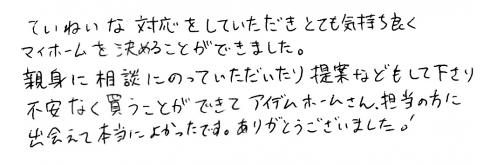 ていねいな対応をしていただきとても気持ち良く
マイホームを決めることができました。
親身に相談にのっていただいたり提案などもして下さり
不安なく買うことができてアイデムホームさん、担当の方に
出会えて本当によかったです。ありがとうございました!